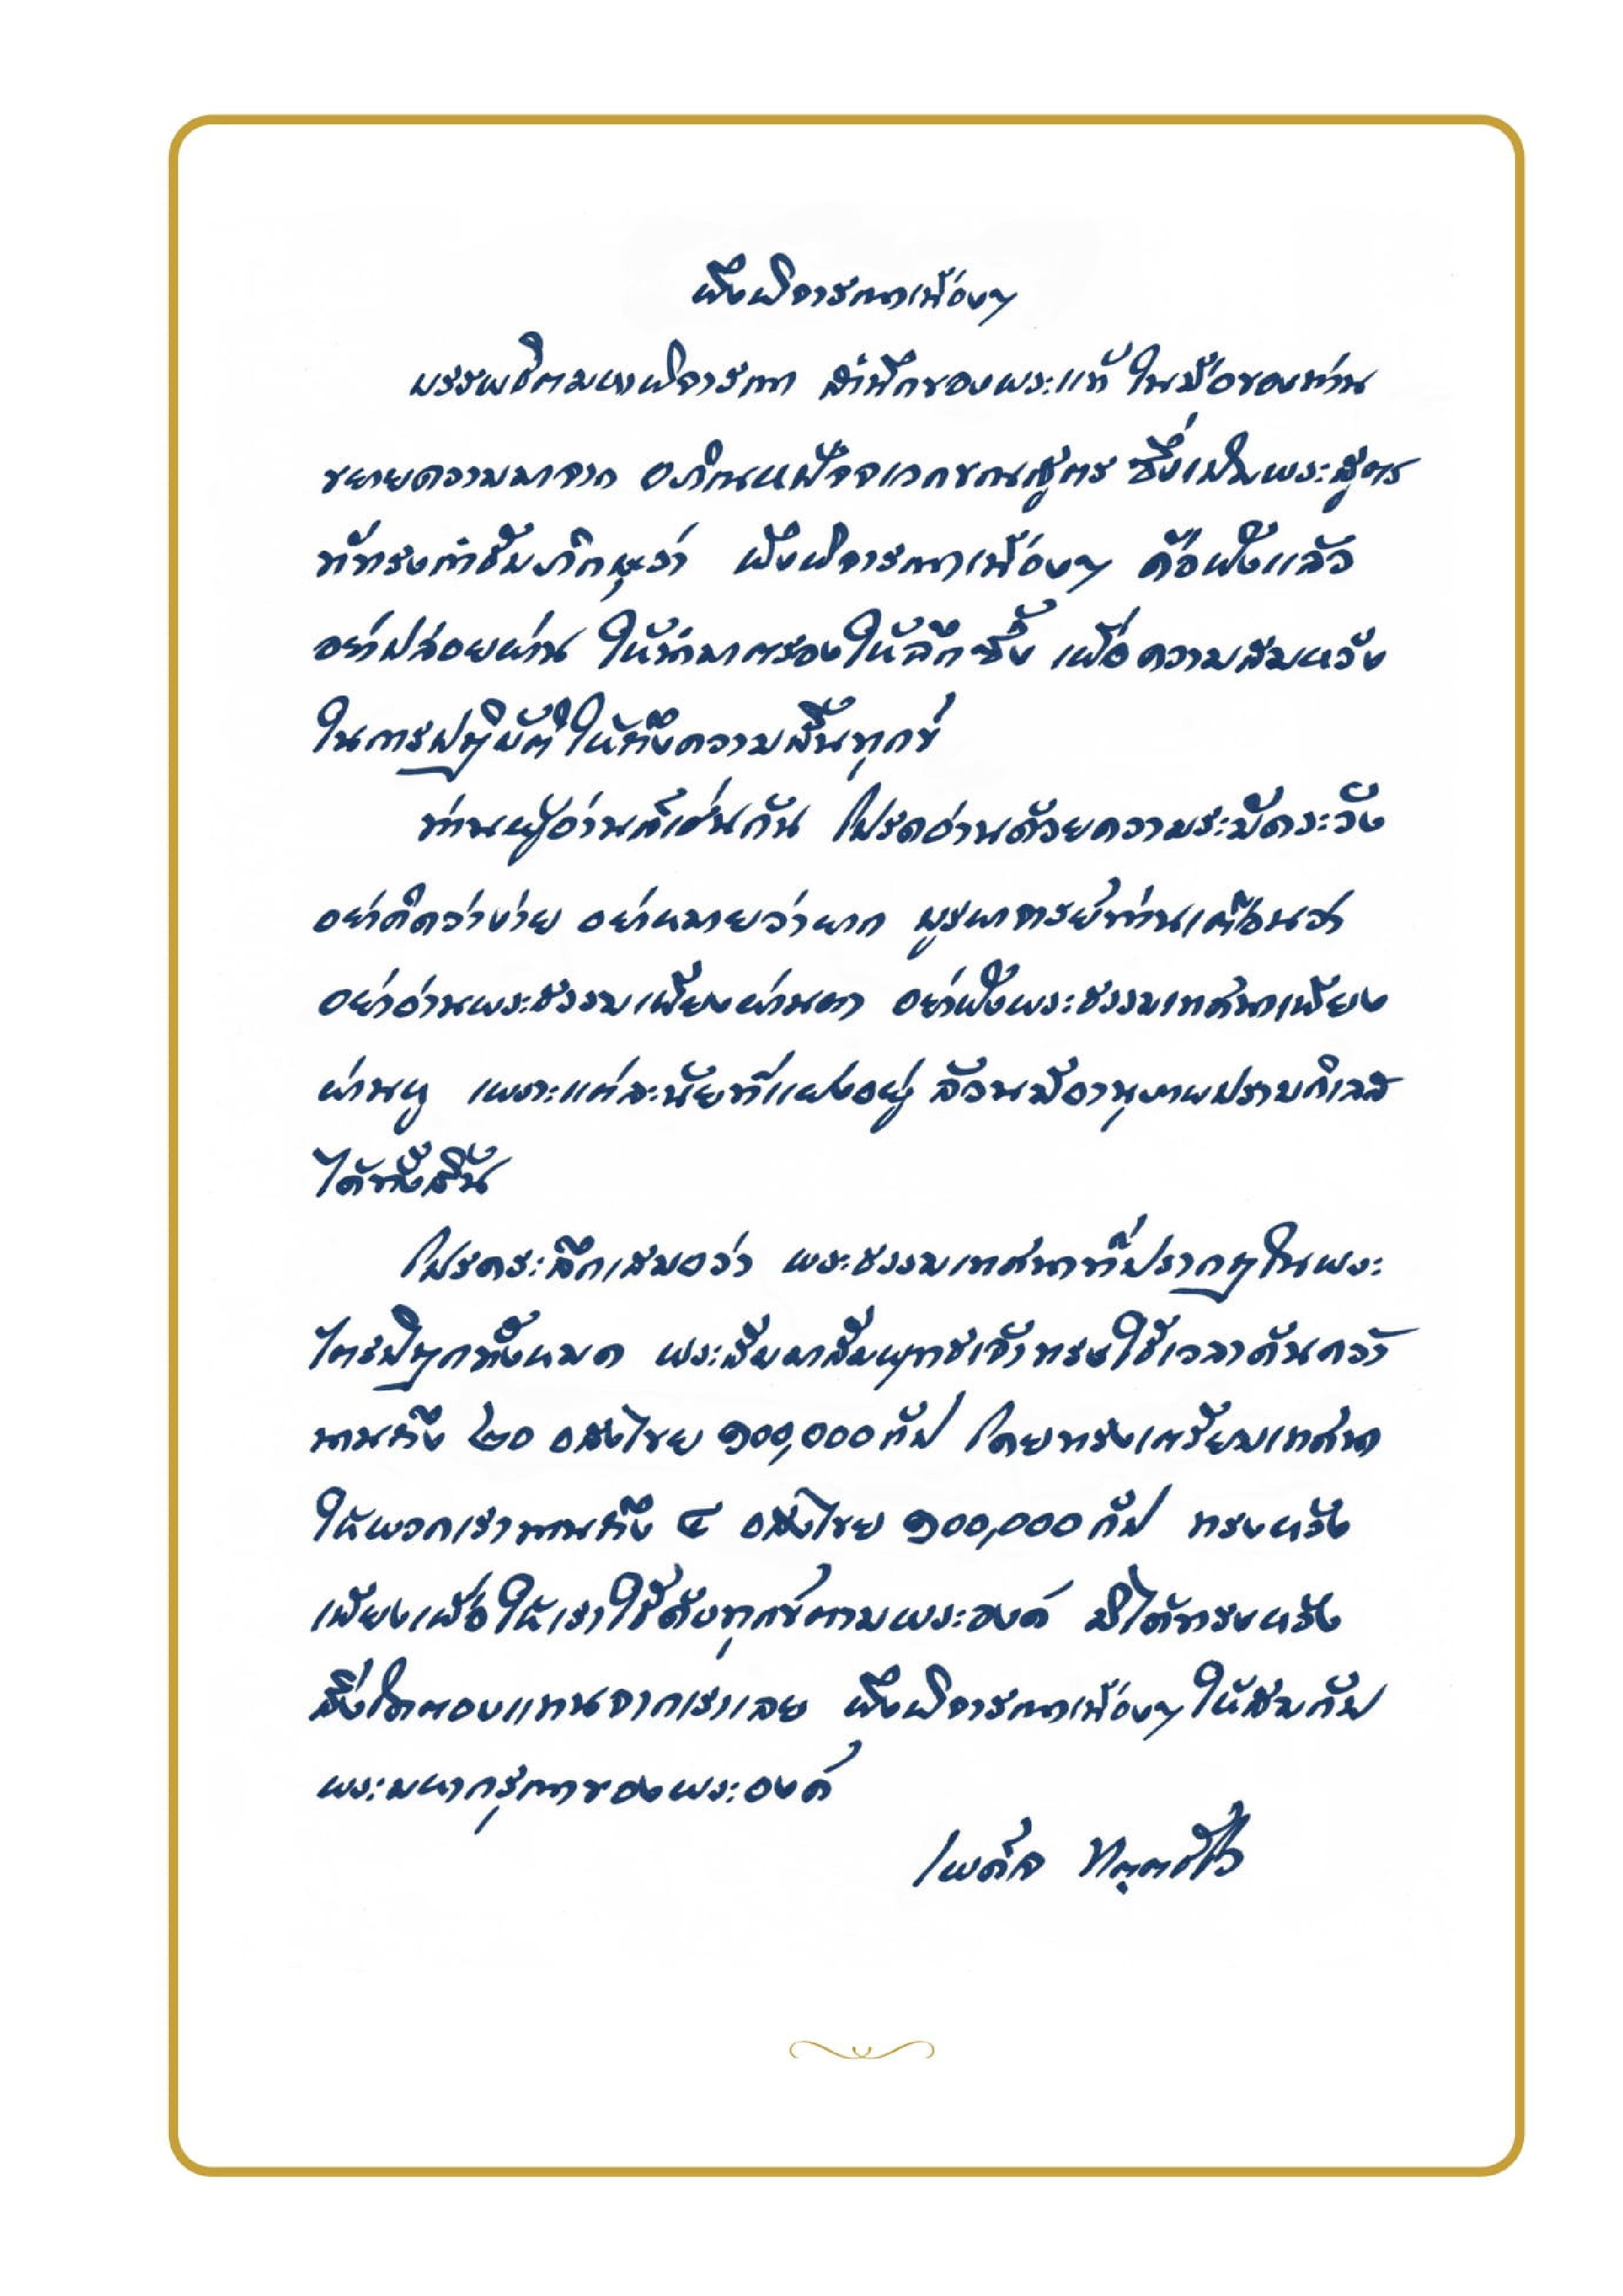 พึงพิจารณาเนืองๆ
บรรพชิตมหาพิจารณา สำนึกของพระแท้ ในมือของท่าน
ขยายความมาจาก อภิณหปัจจเวกขณสูตร ซึ่งเป็นพระสูตร
ที่ทรงกำชับภิกษุว่า พึงพิจารณาเนืองๆ คือฟังแล้ว
อย่าปล่อยผ่าน ให้นำมาตรองให้ลึกซึ้ง เพื่อความสมหวัง
ในการปฏิบัติให้ถึงความสิ้นทุกข์
ท่านผู้อ่านก็เช่นกัน โปรดอ่านด้วยความระมัดระวัง
อย่าคิดว่าง่าย อย่าหมายว่ายาก บูรพาจารย์ท่านเตือนว่า
อย่าอ่านพระธรรมเพียงผ่านตา อย่าฟังพระธรรมเทศนาเพียง
ผ่านหู เพราะแต่ละนัยที่แฝงอยู่ ล้วนมีอานุภาพปราบกิเลส
ได้ทั้งสิ้น
โปรดระลึกเสมอว่า พระธรรมเทศนาที่ปรากฏในพระ
ไตรปิฎกทั้งหมด พระสัมมาสัมพุทธเจ้าทรงใช้เวลาค้นคว้า
นานถึง ๒๐ อสงไขย ๑๐๐,๐๐๐ กัป โดยทรงเตรียมเทศน์
ให้พวกเรานานถึง ๔ อสงไขย ๑๐๐,๐๐๐ กัป ทรงหวัง
เพียงเพื่อให้เราใช้ดับทุกข์ตามพระองค์ มิได้ทรงหวัง
สิ่งใดตอบแทนจากเราเลย พึงพิจารณาเนืองๆ ให้สมกับ
พระมหากรุณาของพระองค์
เผด็จ ทตฺตชีโว